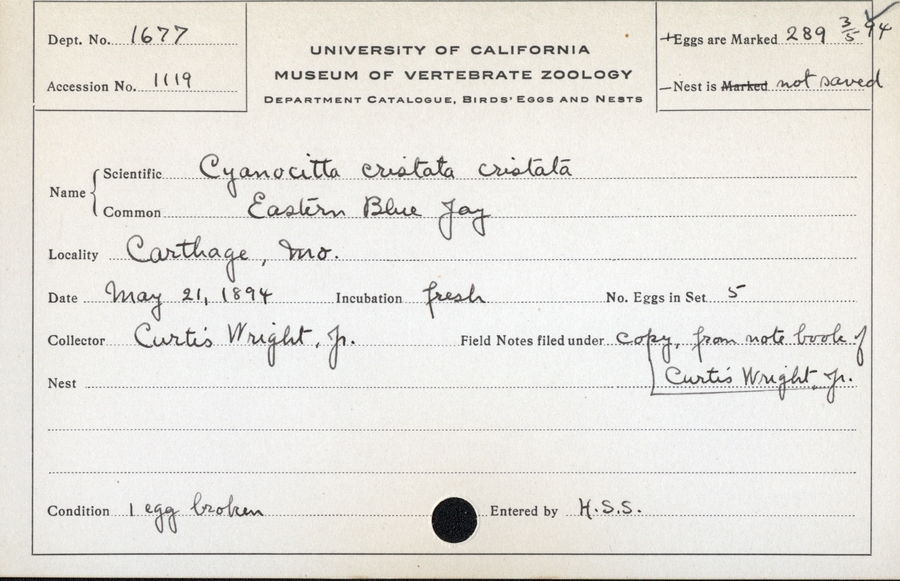 Dept. No. 1677
Accession No. 1119
UNIVERSITY OF CALIFORNIA
MUSEUM OF VERTEBRATE ZOOLOGY
DEPARTMENT CATALOGUE, BIRDS' EGGS AND NESTS
+Eggs are Marked 289 3/5 94
–Nest is Marked not saved
Name
Scientific Cyanocitta cristata cristata
Common Eastern Blue Jay
Locality Carthage, Mo.
Date May 21, 1894 Incubation fresh No. Eggs in Set 5
Collector Curtis Wright, Jr. Field Notes filed under copy, from note book of
Nest Curtis Wright, Jr.
Condition 1 egg broken Entered by H.S.S.